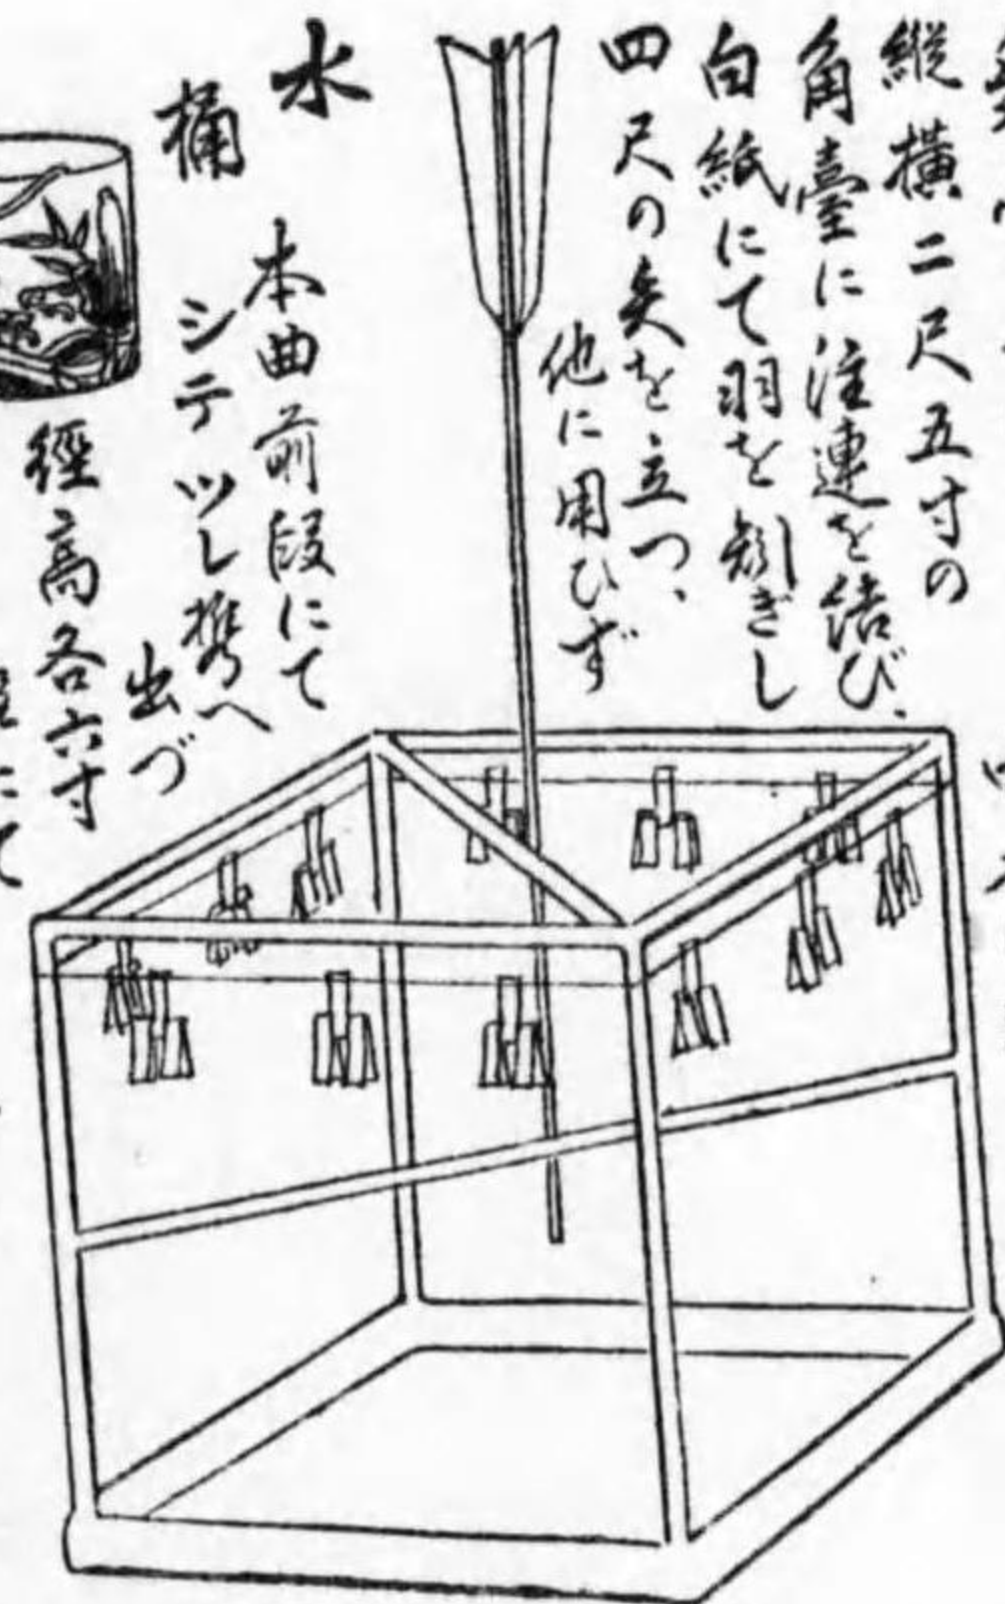 縦横二尺五寸の
角臺に注連を結び、
白紙にて羽を剝ぎし
四尺の矢を立つ、
他に用ひず
水桶
本曲前段にて
シテツレ携へ
出づ
徑高各六寸